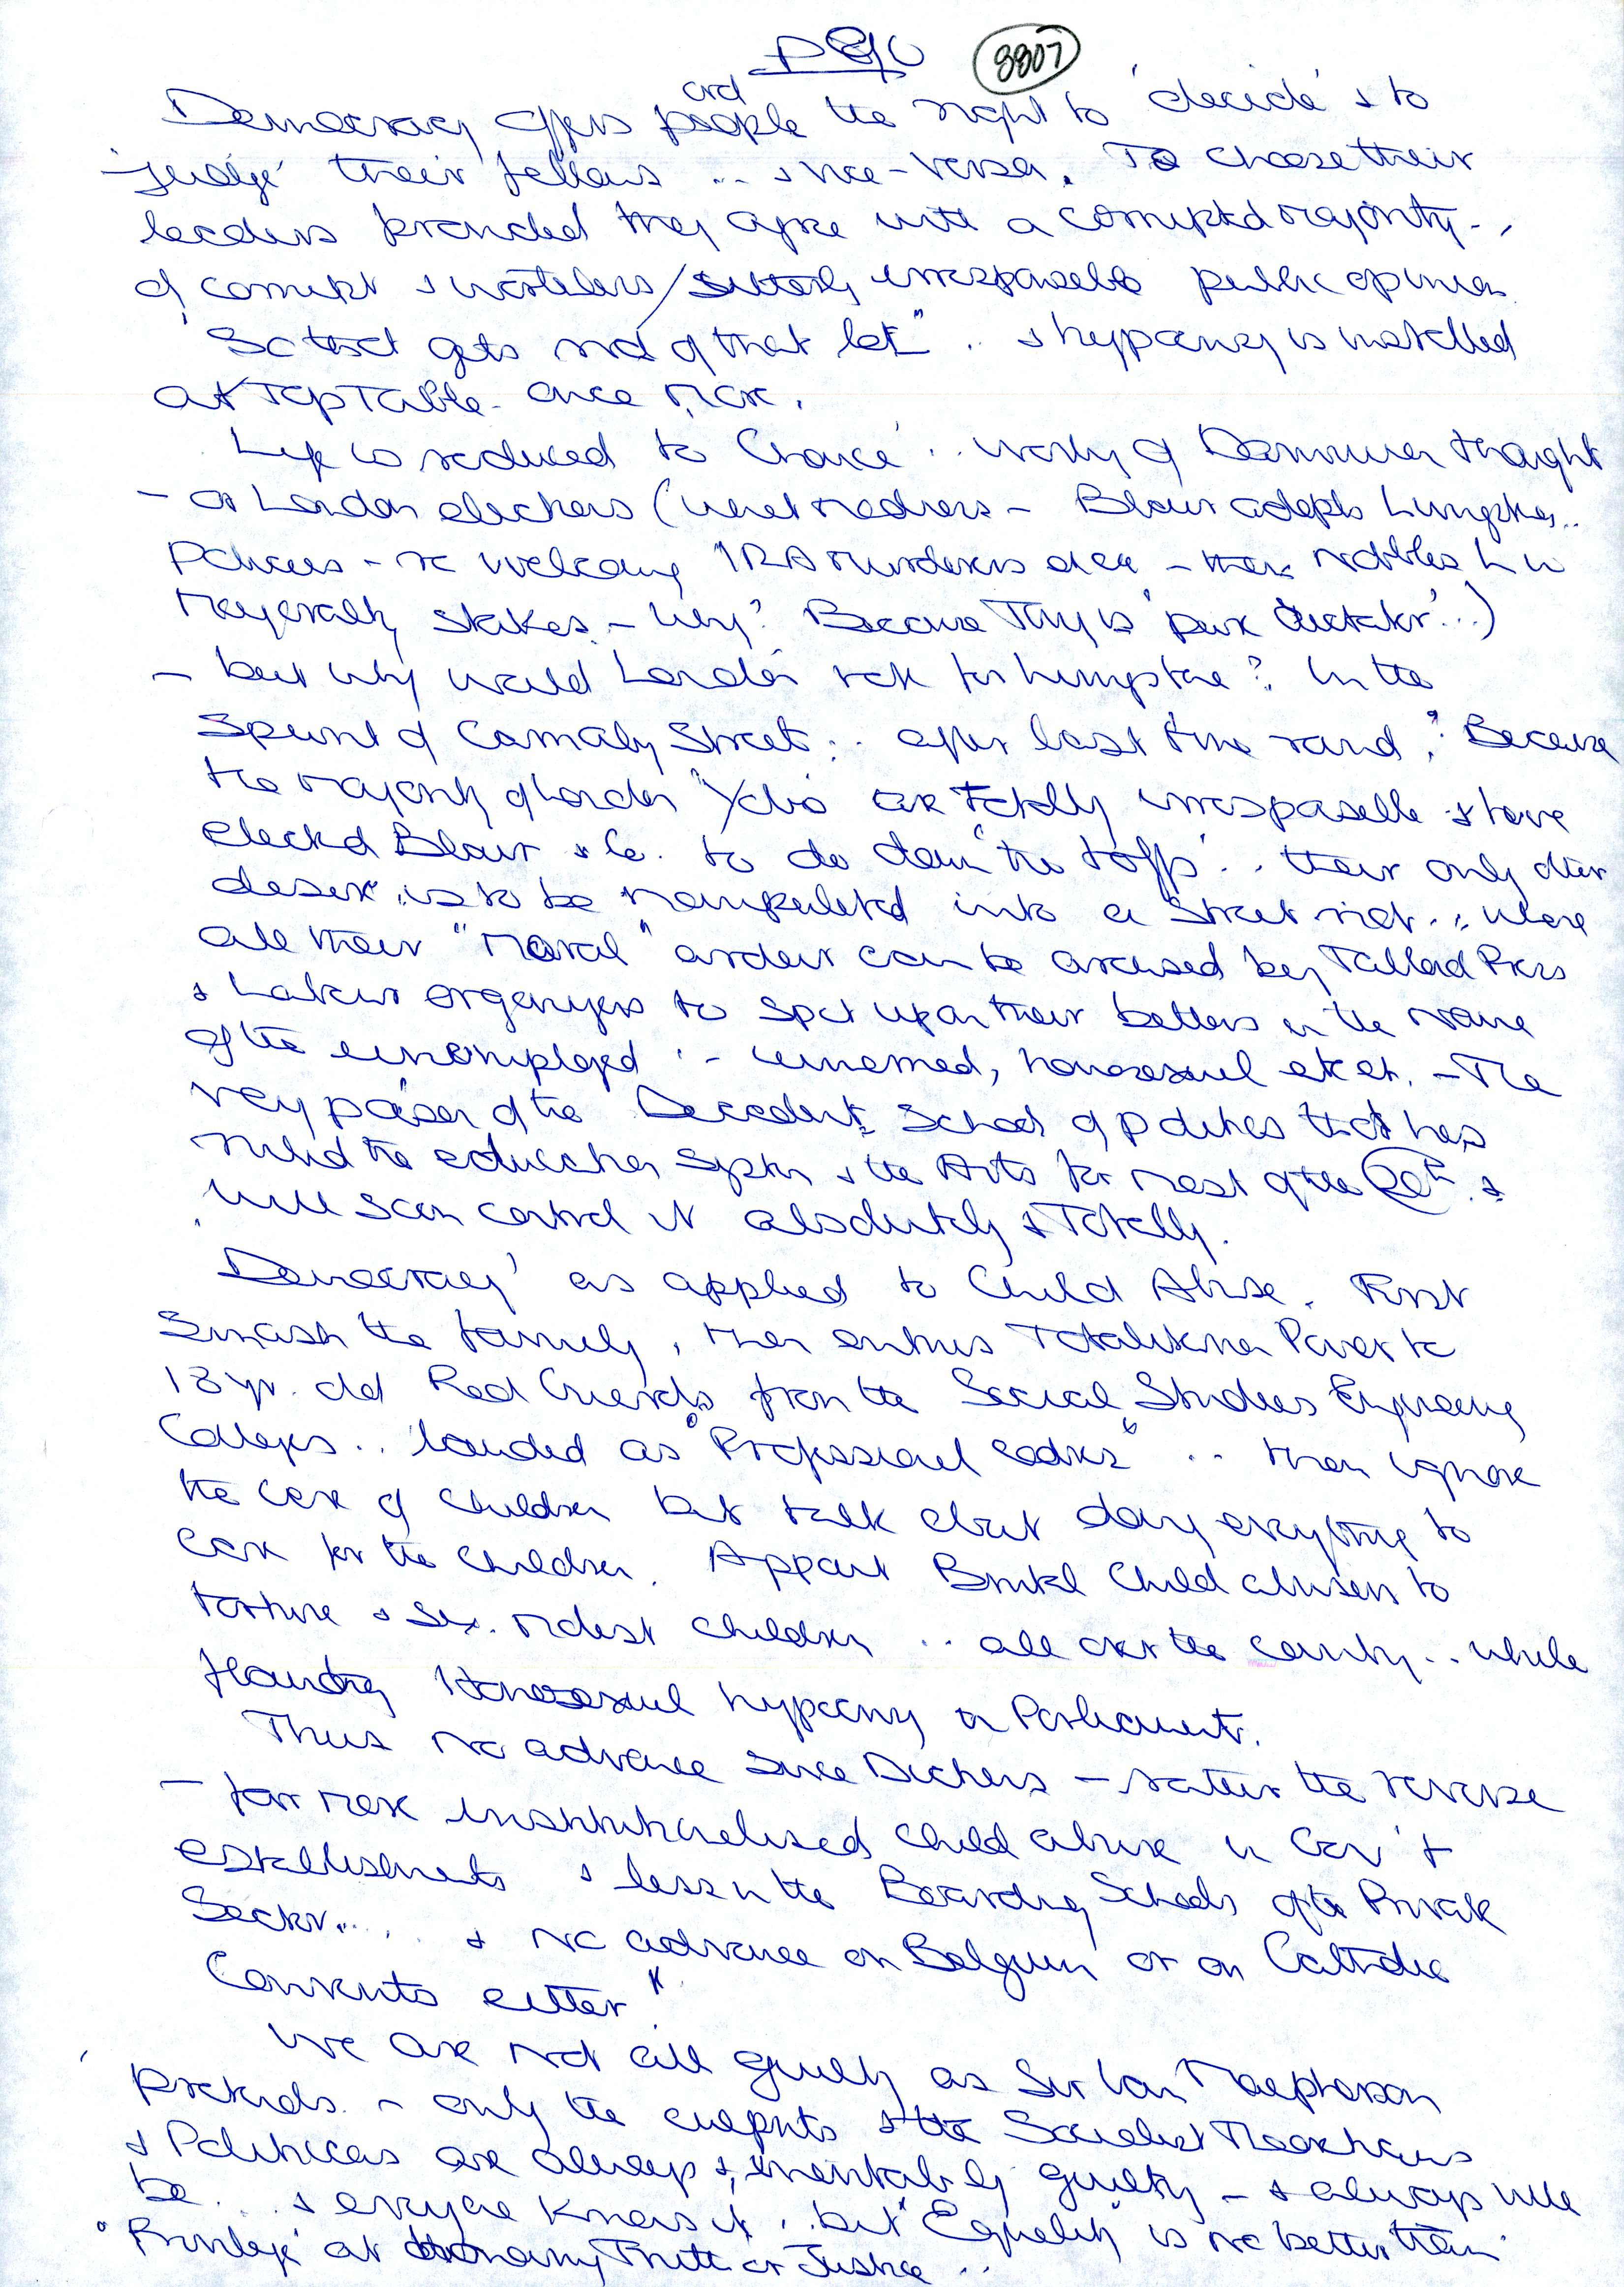 8807
ord
Democracy offers people the right to 'decide' & to
'judge' their fellows ... & vice-versa. To choose their
leaders provided they agree with a corrupted majority..
of corrupt & worthless / utterly irresponsible public opinion
gets rid of that lot" .. & hypocrisy is installed
at Top Table once more.
Life is reduced to 'Chance' .. worthy of Darwinian thought
- or London elections (what madness - Blair adopts Livingstone..
Policies - re welcoming IRA murderers etc - then nobbles him in
Mayoralty Stakes - why? Because Tony is 'pure dictator'...)
- but why would London vote for Livingstone? In the
Spirit of Carnaby Street .. after last time round? Because
the majority of London "Yobs are totally irresponsible & have
elected Blair & Co. to do down 'the toffs' .. their only other
desire is to be manipulated into a street riot .. where
all their "moral" ardour can be aroused by Tabloid Press
& Labour organisers to spit upon their betters in the name
of the unemployed .. - unarmed, homosexual etc etc. - The
very poison of the Decadent School of politics that has
ruled the education system & the Arts for most of the 20th &
will soon control it absolutely & Totally.
'Democracy' as applied to Child Abuse. First
Smash the family, then entrus Totalitarian Power to
18 yr. old Red Guards from the Social Studies Engineering
Colleges .. lauded as "Professional cadres" .. then ignore
the care of children but talk about doing everything to
care for the children. Appoint Brutal Child abusers to
torture & sex. molest children .. all over the country .. while
flaunting Homosexual hypocrisy in Parliament.
Thus no advance since Dickens - rather the reverse
- far more institutionalised child abuse in Gov't
establishments & less in the Boarding Schools of the Private
Sector.... & no advance on Belgium or on Catholic
Convents either"
We are not all guilty as Sir Ian Macpherson
pretends - only the culprits & the Socialist Theoreticians
& Politicians are always & inevitably guilty - & always will
be ... & everyone knows it, but "Equality" is no better than
'Privilege' at dishonouring Truth or Justice ..